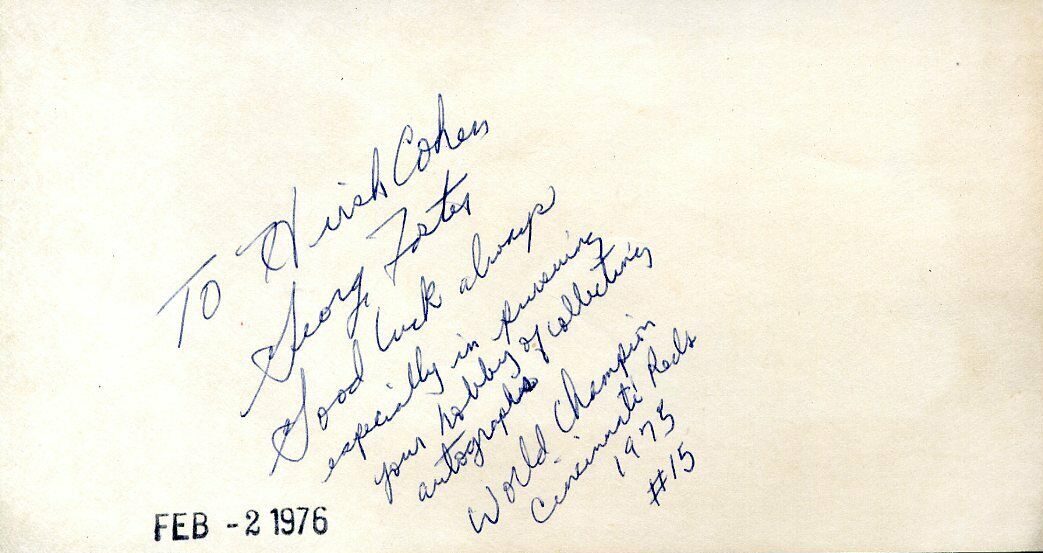 To Hirsh Cohen
George Foster
Good luck always
especially in pursuing
your hobby of collecting
autographs
World Champion
Cincinnati Reds
1975
#15
FEB -2 1976